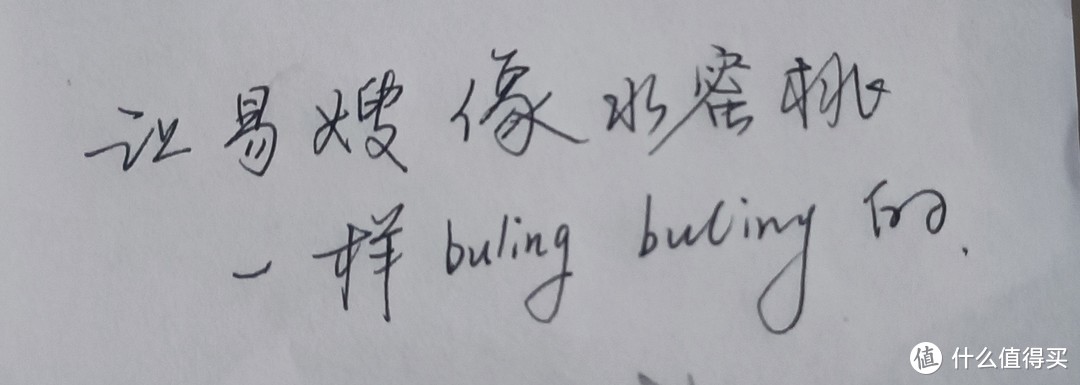 让易嫂像水蜜桃
一样buling buling的.
值 什么值得买